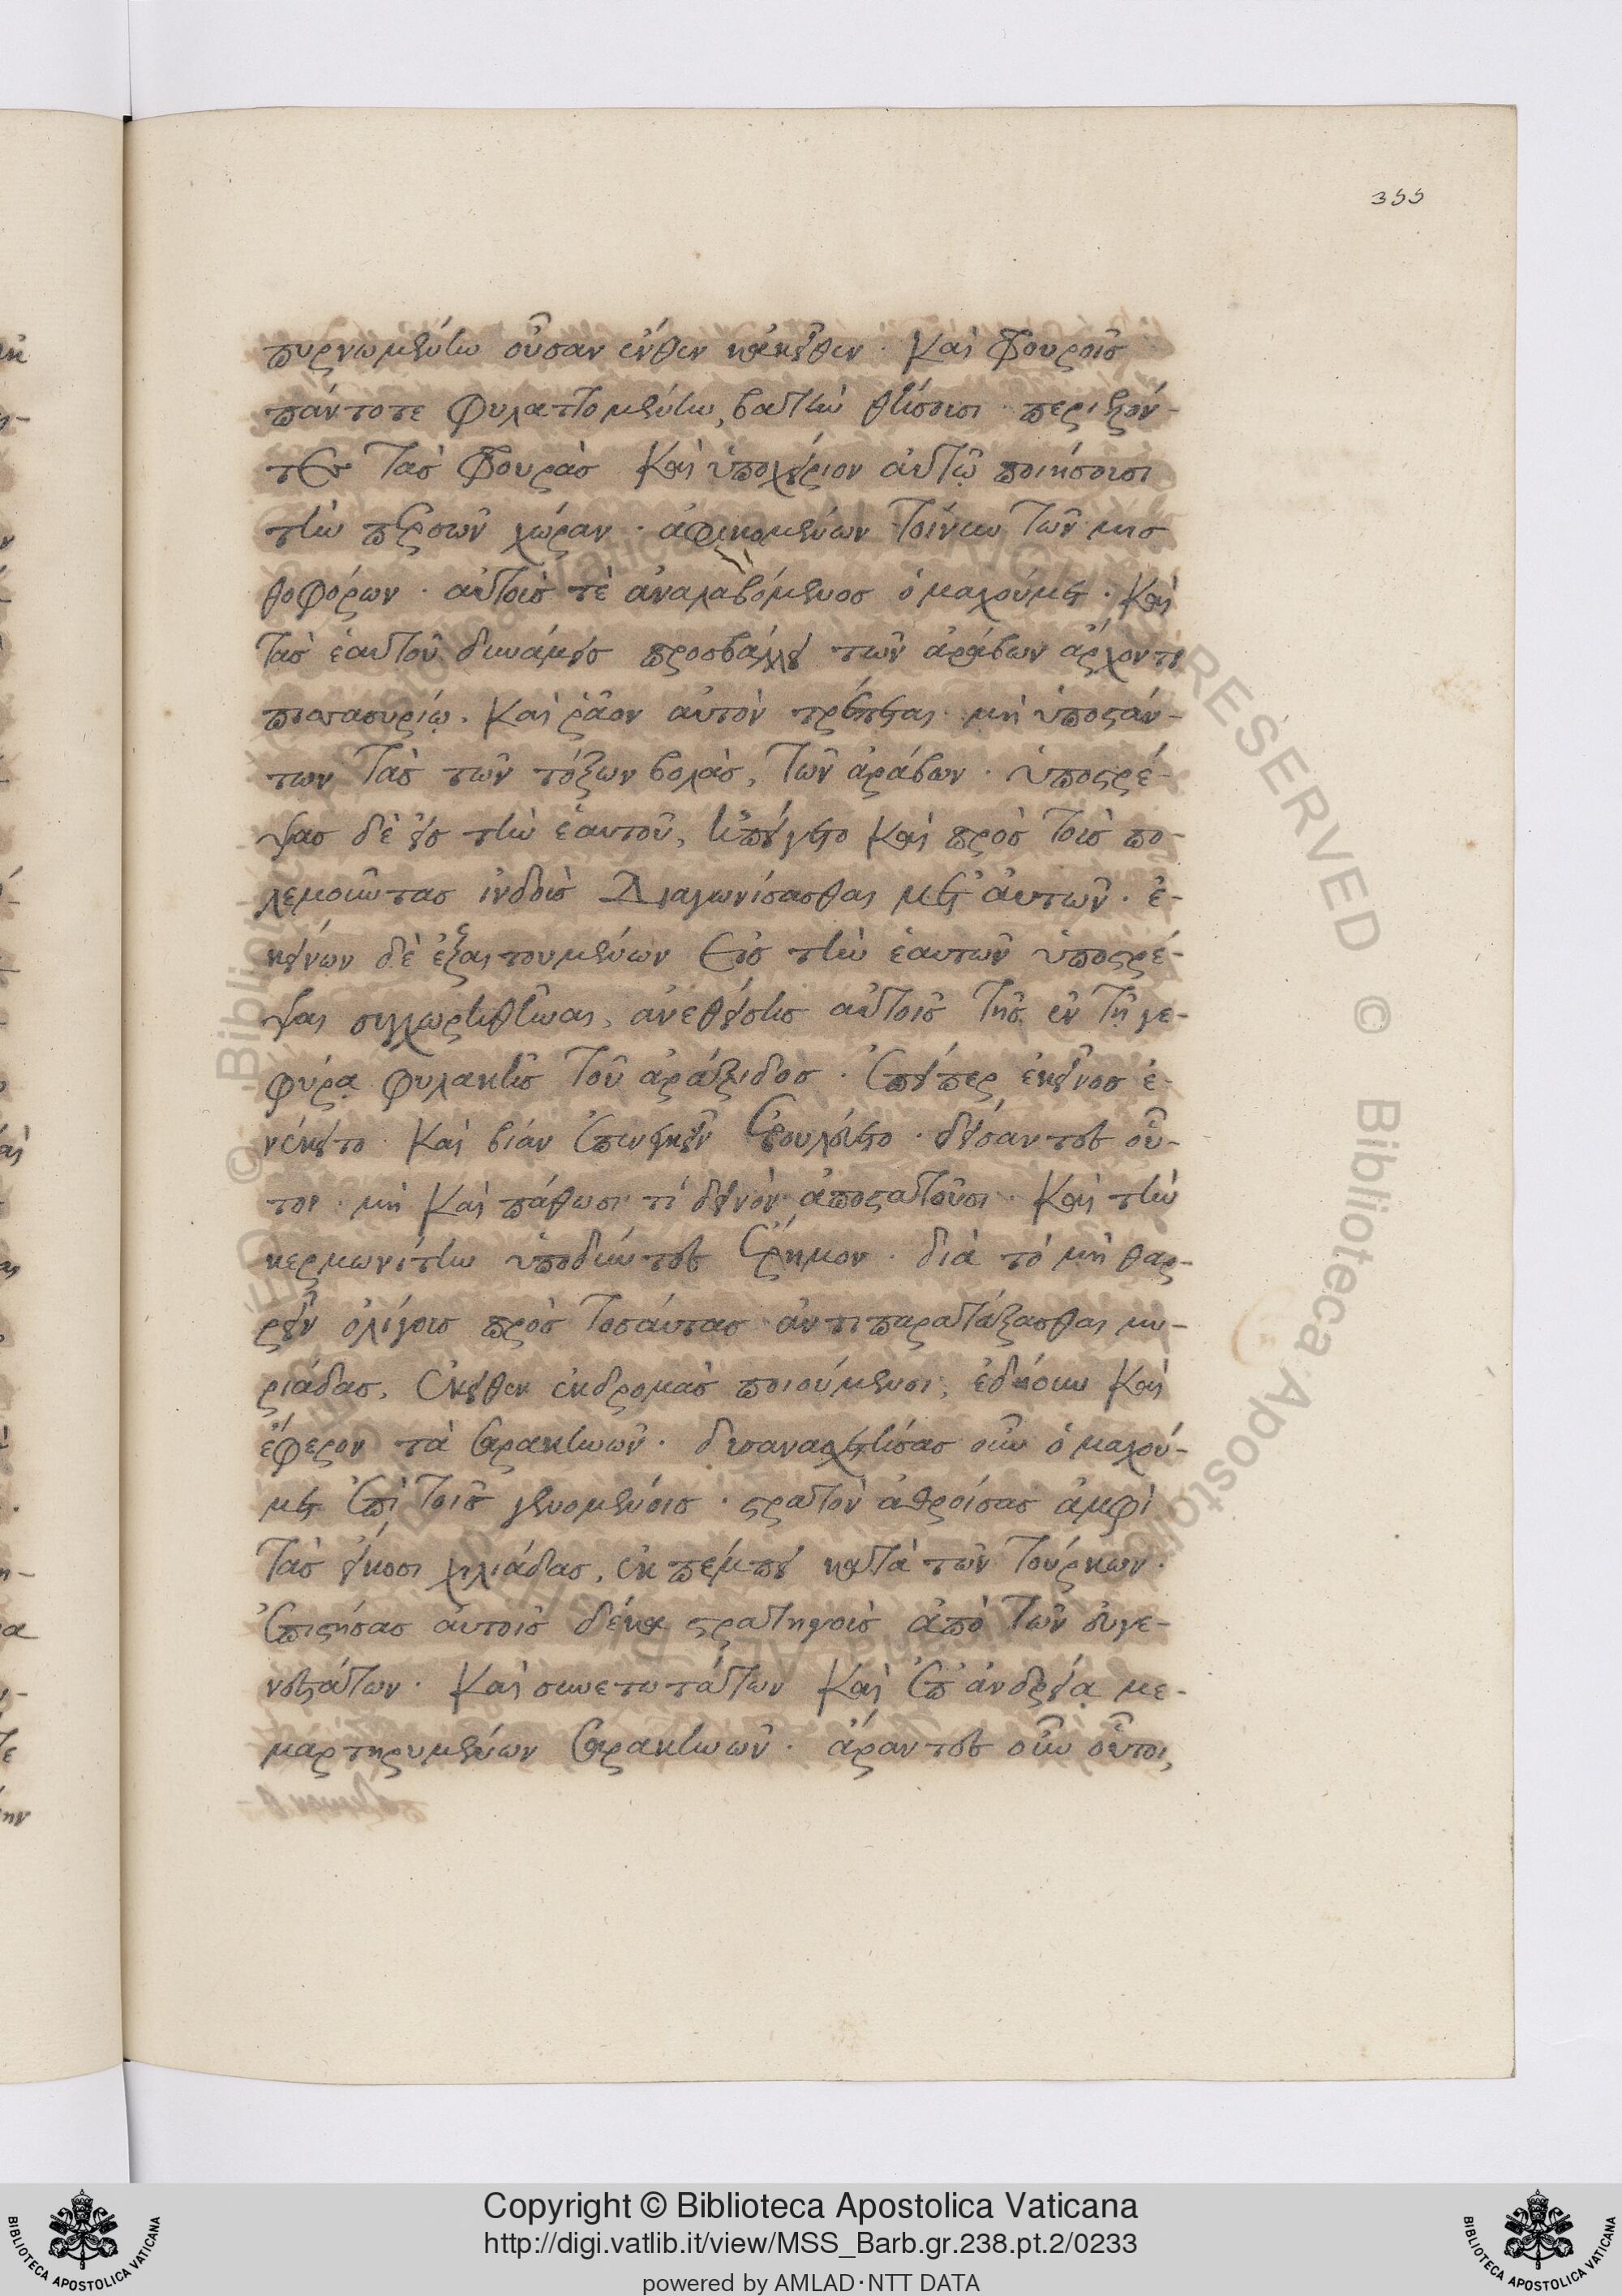 355
πυργωμένην οὖσαν ἔνθεν κἀκεῖθεν · καὶ φρουροῖς
πάντοτε φυλαττομένην, βατὴν θήσουσι · περιελόν-
τες τὰς φρουρὰς καὶ ὑποχείριον αὐτῷ ποιήσουσι
τὴν περσῶν χώραν · ἀφικομένων τοίνυν τῶν μισ
θοφόρων · αὐτούς τὲ ἀναλαβόμενος ὁ μαχούμετ · καὶ
τὰς ἑαυτοῦ δυνάμεις προσβάλλει τῶν ἀράβων ἄρχοντι
πισασυρίῳ · καὶ ῥᾶον αὐτὸν τρέπεται · μὴ ὑποστάν-
των τὰς τῶν τόξων βολὰς, τῶν ἀράβων · ὑποστρέ-
ψας δὲ εἰς τὴν ἑαυτοῦ, ἠπείγετο καὶ πρὸς τοὺς πο-
λεμοῦντας ἰνδοὺς διαγωνίσασθαι μετ' αὐτῶν · ἐ-
κείνων δὲ ἐξαιτουμένων εἰς τὴν ἑαυτῶν ὑποστρέ-
ψαι συγχωρηθῆναι, ἀνεθείσης αὐτοῖς τῆς ἐν τῇ γε-
φύρᾳ φυλακῆς τοῦ ἀράξιδος · ἐπείπερ ἐκεῖνος ἐ-
νέκειτο · καὶ βίαν ἐπενεγκεῖν ἐβουλεύετο · δείσαντες οὗ-
τοι · μὴ καὶ πάθωσι τί δεινὸν ἀποστατοῦσι · καὶ τὴν
κερμωνίτην ὑποδύντες ἔρημον · διὰ τὸ μὴ θαρ-
ρεῖν ὀλίγοις πρὸς τοσαύτας ἀντιπαρατάξασθαι μυ-
ριάδας, ἐκεῖθεν ἐκδρομὰς ποιούμενοι, ἐδῄουν καὶ
ἔφερον τὰ σαρακηνῶν · δυσανασχετήσας οὖν ὁ μαχού-
μετ ἐπὶ τοῖς γενομένοις · στρατὸν ἀθροίσας ἀμφὶ
τὰς εἴκοσι χιλιάδας, ἐκπέμπει κατὰ τῶν τούρκων ·
ἐπιστήσας αὐτοῖς δέκα στρατηγοὺς ἀπὸ τῶν εὐγε-
νεστάτων · καὶ συνετωτάτων καὶ ἐπ' ἀνδρείᾳ με-
μαρτηρυμένων σαρακηνῶν · ἄραντες οὖν οὗτοι,
Copyright © Biblioteca Apostolica Vaticana
http://digi.vatlib.it/view/MSS_Barb.gr.238.pt.2/0233
powered by AMLAD·NTT DATA